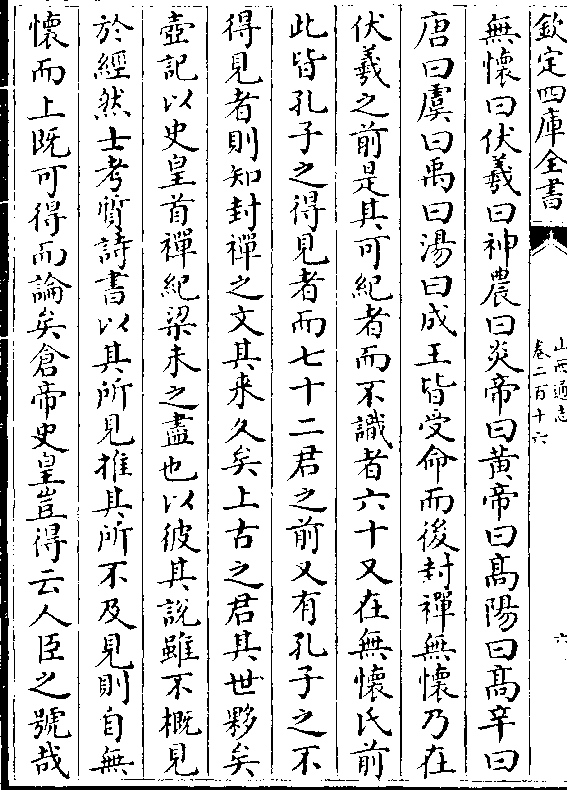 欽定四庫全書
山西通志
卷二百十六
六
無懷曰伏羲曰神農曰炎帝曰黃帝曰髙陽曰髙辛曰
唐曰虞曰禹曰湯曰成王皆受命而後封禪無懷乃在
伏羲之前是其可紀者而不識者六十又在無懷氏前
此皆孔子之得見者而七十二君之前又有孔子之不
得見者則知封禪之文其来久矣上古之君其世夥矣
壺記以史皇首禪紀梁未之盡也以彼其說雖不概見
於經然士考質詩書以其所見推其所不及見則自無
懷而上既可得而論矣倉帝史皇豈得云人臣之號哉